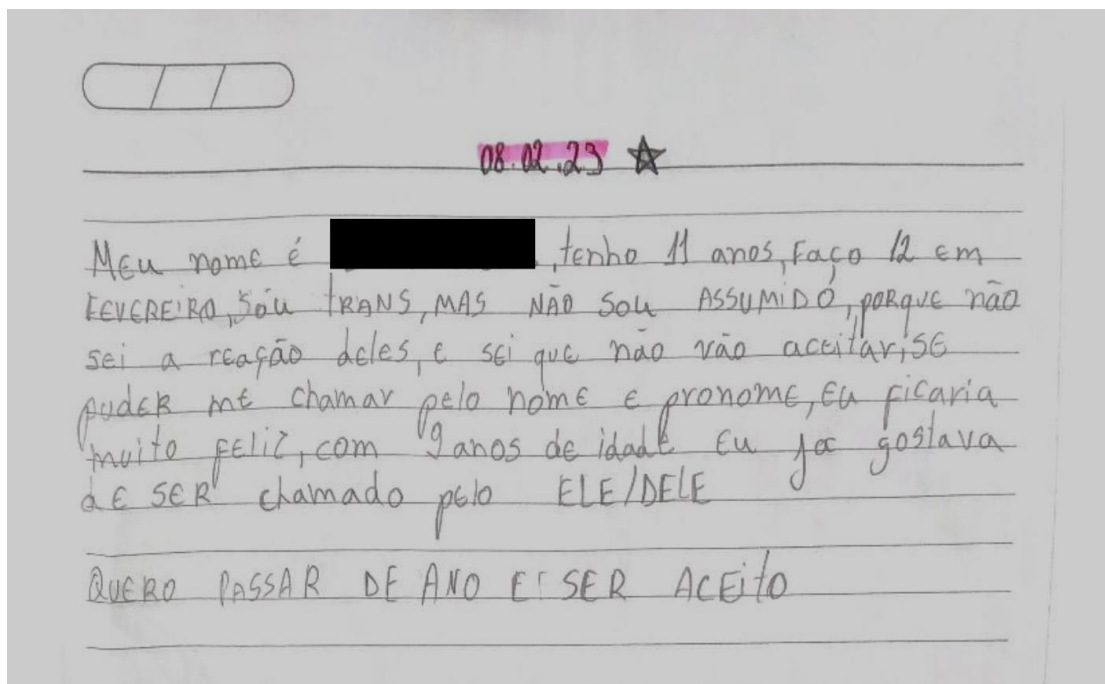 08.02.23
Meu nome é , tenho 11 anos, Faço 12 em
FEVEREIRO, Sou TRANS, MAS NÃO SOU ASSUMIDO, porque não
sei a reação deles, e sei que não vão aceitar, SE
puder me chamar pelo nome e pronome, Eu ficaria
muito FELIZ, com 9 anos de idade Eu já gostava
de SER chamado pelo ELE/DELE
QUERO PASSAR DE ANO E SER ACEITO